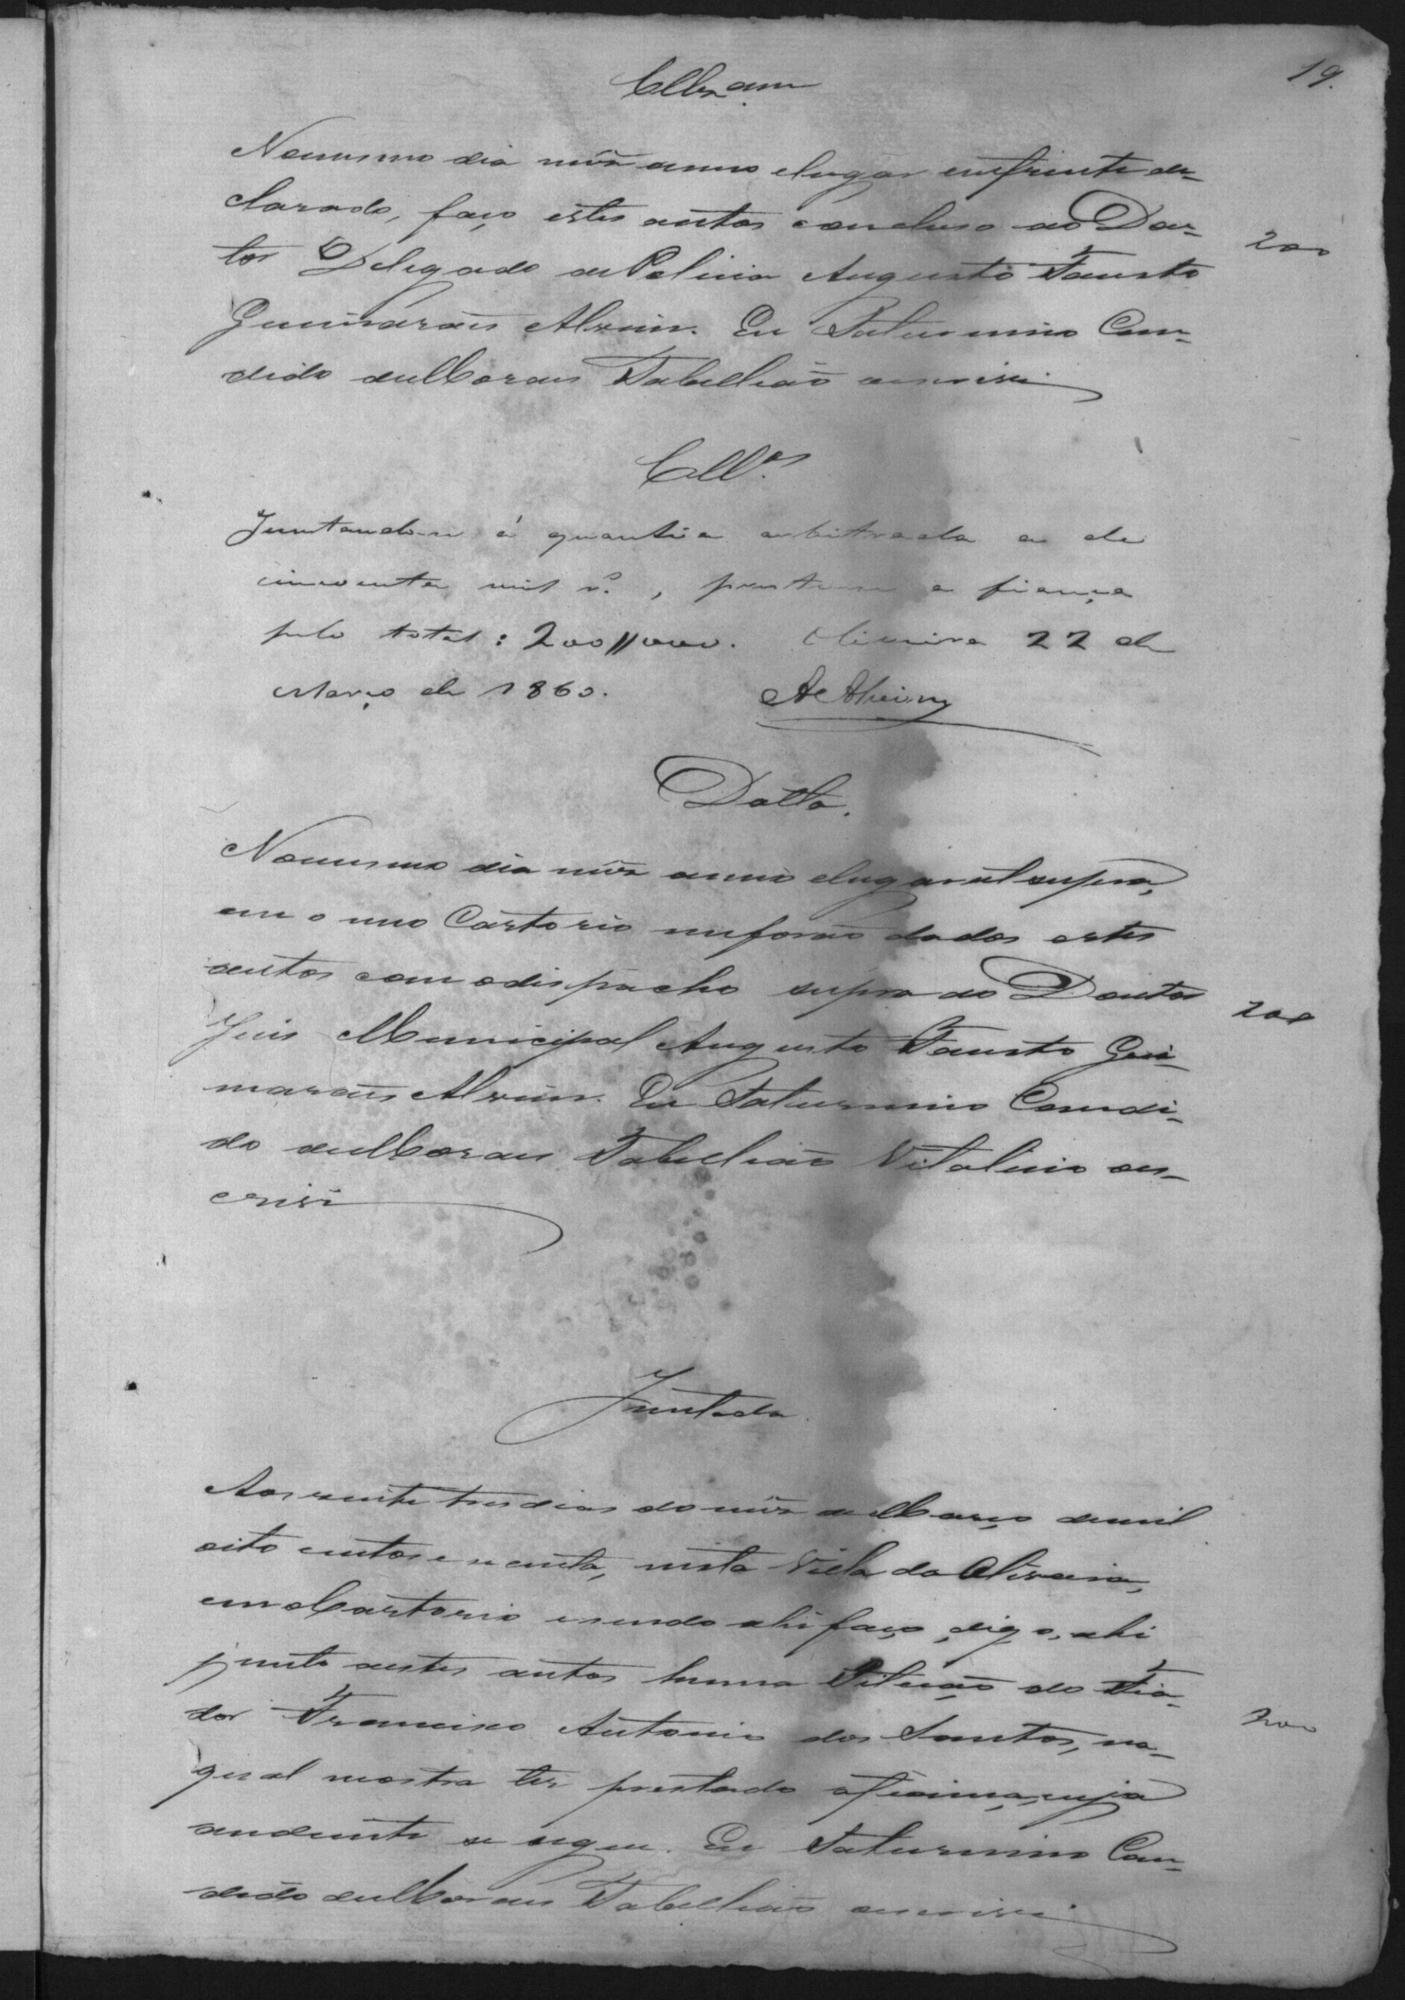 19.
Cllzam
Nomesmo dia mês anno elugar emfrente de-
clarado, faço estes autos concluso ao Dou-
tor Delegado de Policia Augusto Fausto
Guimaraes Alvim. Eu Saturnino Can-
dido de Moraes Tabelliaõ escrivi
200
Cll.os
Juntando-se á quantia arbitrada a de
cincoenta mil r.s, preste-se a fiança
pelo total: 200//000. Oliveira 22 de
Março de 1860.
A Alvim
Datta.
Nomesmo dia mês anno elugar ut supra,
em o meo Cartorio me foraõ dados estes
autos com o dispacho supra do Doutor
Juis Municipal Augusto Fausto Gui-
maraes Alvim. Eu Saturnino Candi-
do de Moraes Tabelliaõ Vitalicio es-
crivi
200
Juntada
Aos vinte tres dias do mês de Março de mil
oito centos e secenta, nesta Villa da Oliveira,
em o Cartorio e sendo ahi faço, digo, ahi
junto a estes autos huma Petiçaõ do Fia-
dor Francisco Antonio dos Santos, na-
qual mostra ter prestado afiança, cuja
ao diante se segue. Eu Saturnino Can-
dido de Moraes Tabelliaõ escrivi
200